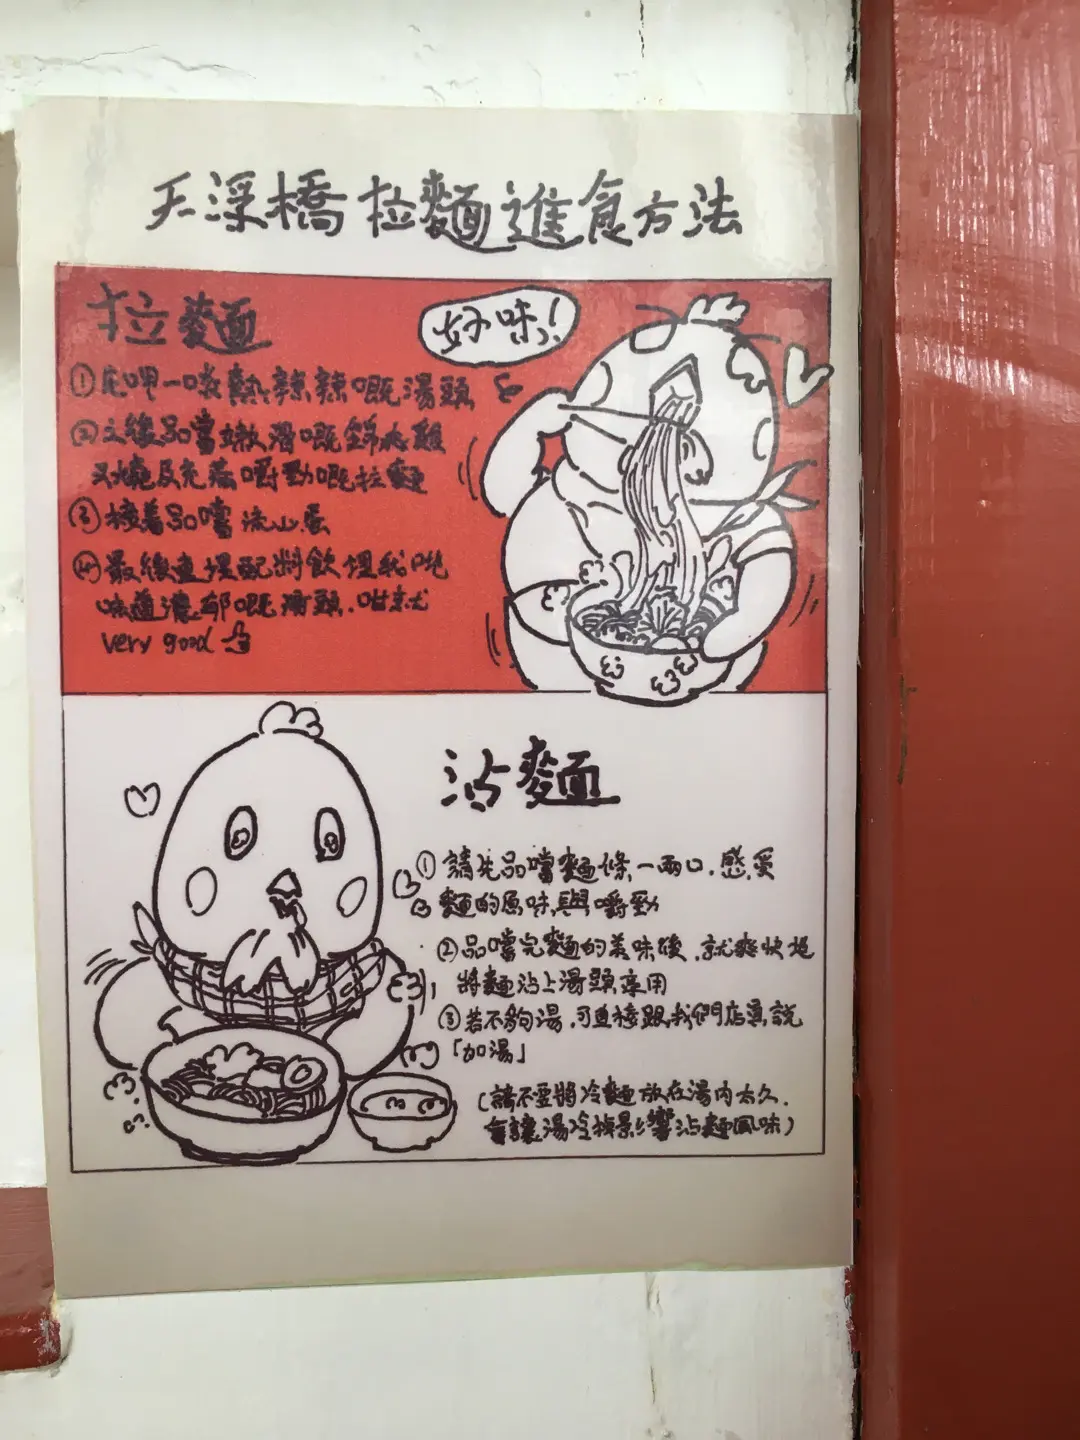 天浮橋拉麵進食方法
拉麵
好味っ!
①先呷一啖熱辣辣嘅湯頭
②之後品嚐嫩滑嘅鮮雞
叉燒及充滿嚼勁嘅拉麵
③接着品嚐流心蛋
④最後直埋配料飲埋我哋
味道濃郁嘅湯頭,咁就
very good
沾麵
①請先品嚐麵條一兩口,感受
麵的原味與嚼勁
②品嚐完麵的美味後,就爽快地
將麵沾上湯頭享用
③若不夠湯,可直接跟我們店員說
「加湯」
(請不要將冷麵放在湯內太久,
會讓湯冷掉影響沾麵風味)